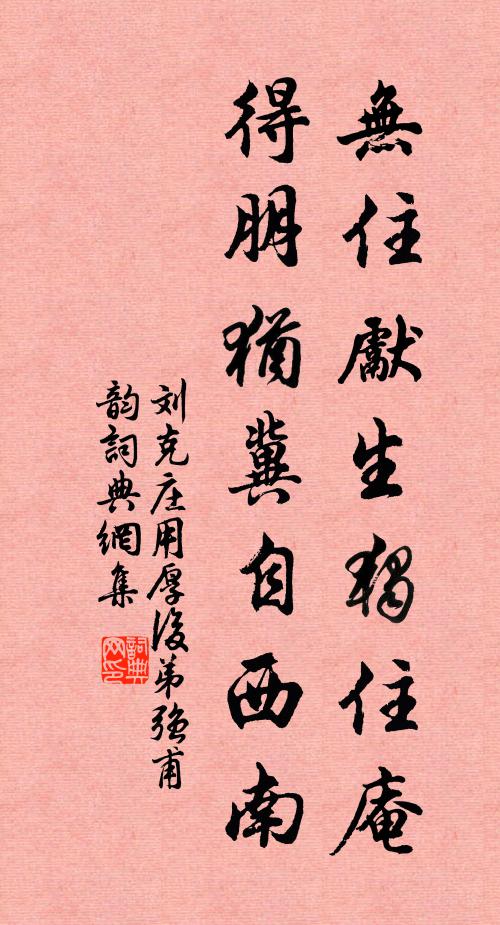 無住獻生獨住庵
得朋猶冀自西南
刘克庄用厚後弟强甫
韵詞典網集
詞典
网印